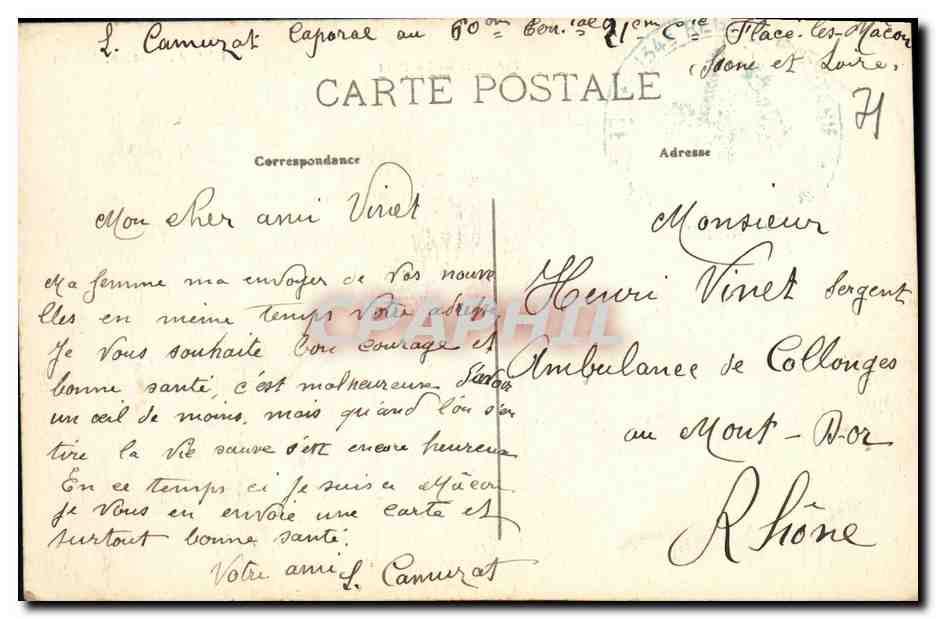 L. Camuzat Caporal au 60ème 21ème Cie Flacé-les-Mâcon
(Saone et Loire)
71
CARTE POSTALE
Correspondance
Adresse
Mon cher ami Vinet
Ma femme ma envoyer de vos nouve
lles en meme temps votre adresse
Je vous souhaite bon courage et
bonne santé, c'est malheureux d'avoir
un œil de moins, mais quand l'on s'en
tire la vie sauve s'ett encore heureux
En ce temps ci Je suis a Mâcon
Je vous en envoie une carte et
surtout bonne santé.
Votre ami L. Camuzat
Monsieur
Henri Vinet Sergent
Ambulance de Collonges
au Mont-D-or
Rhône
CPAPHIL